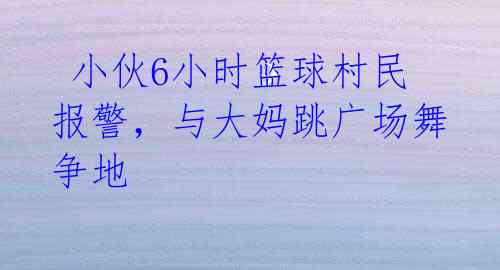 小伙6小时篮球村民
报警，与大妈跳广场舞
争地